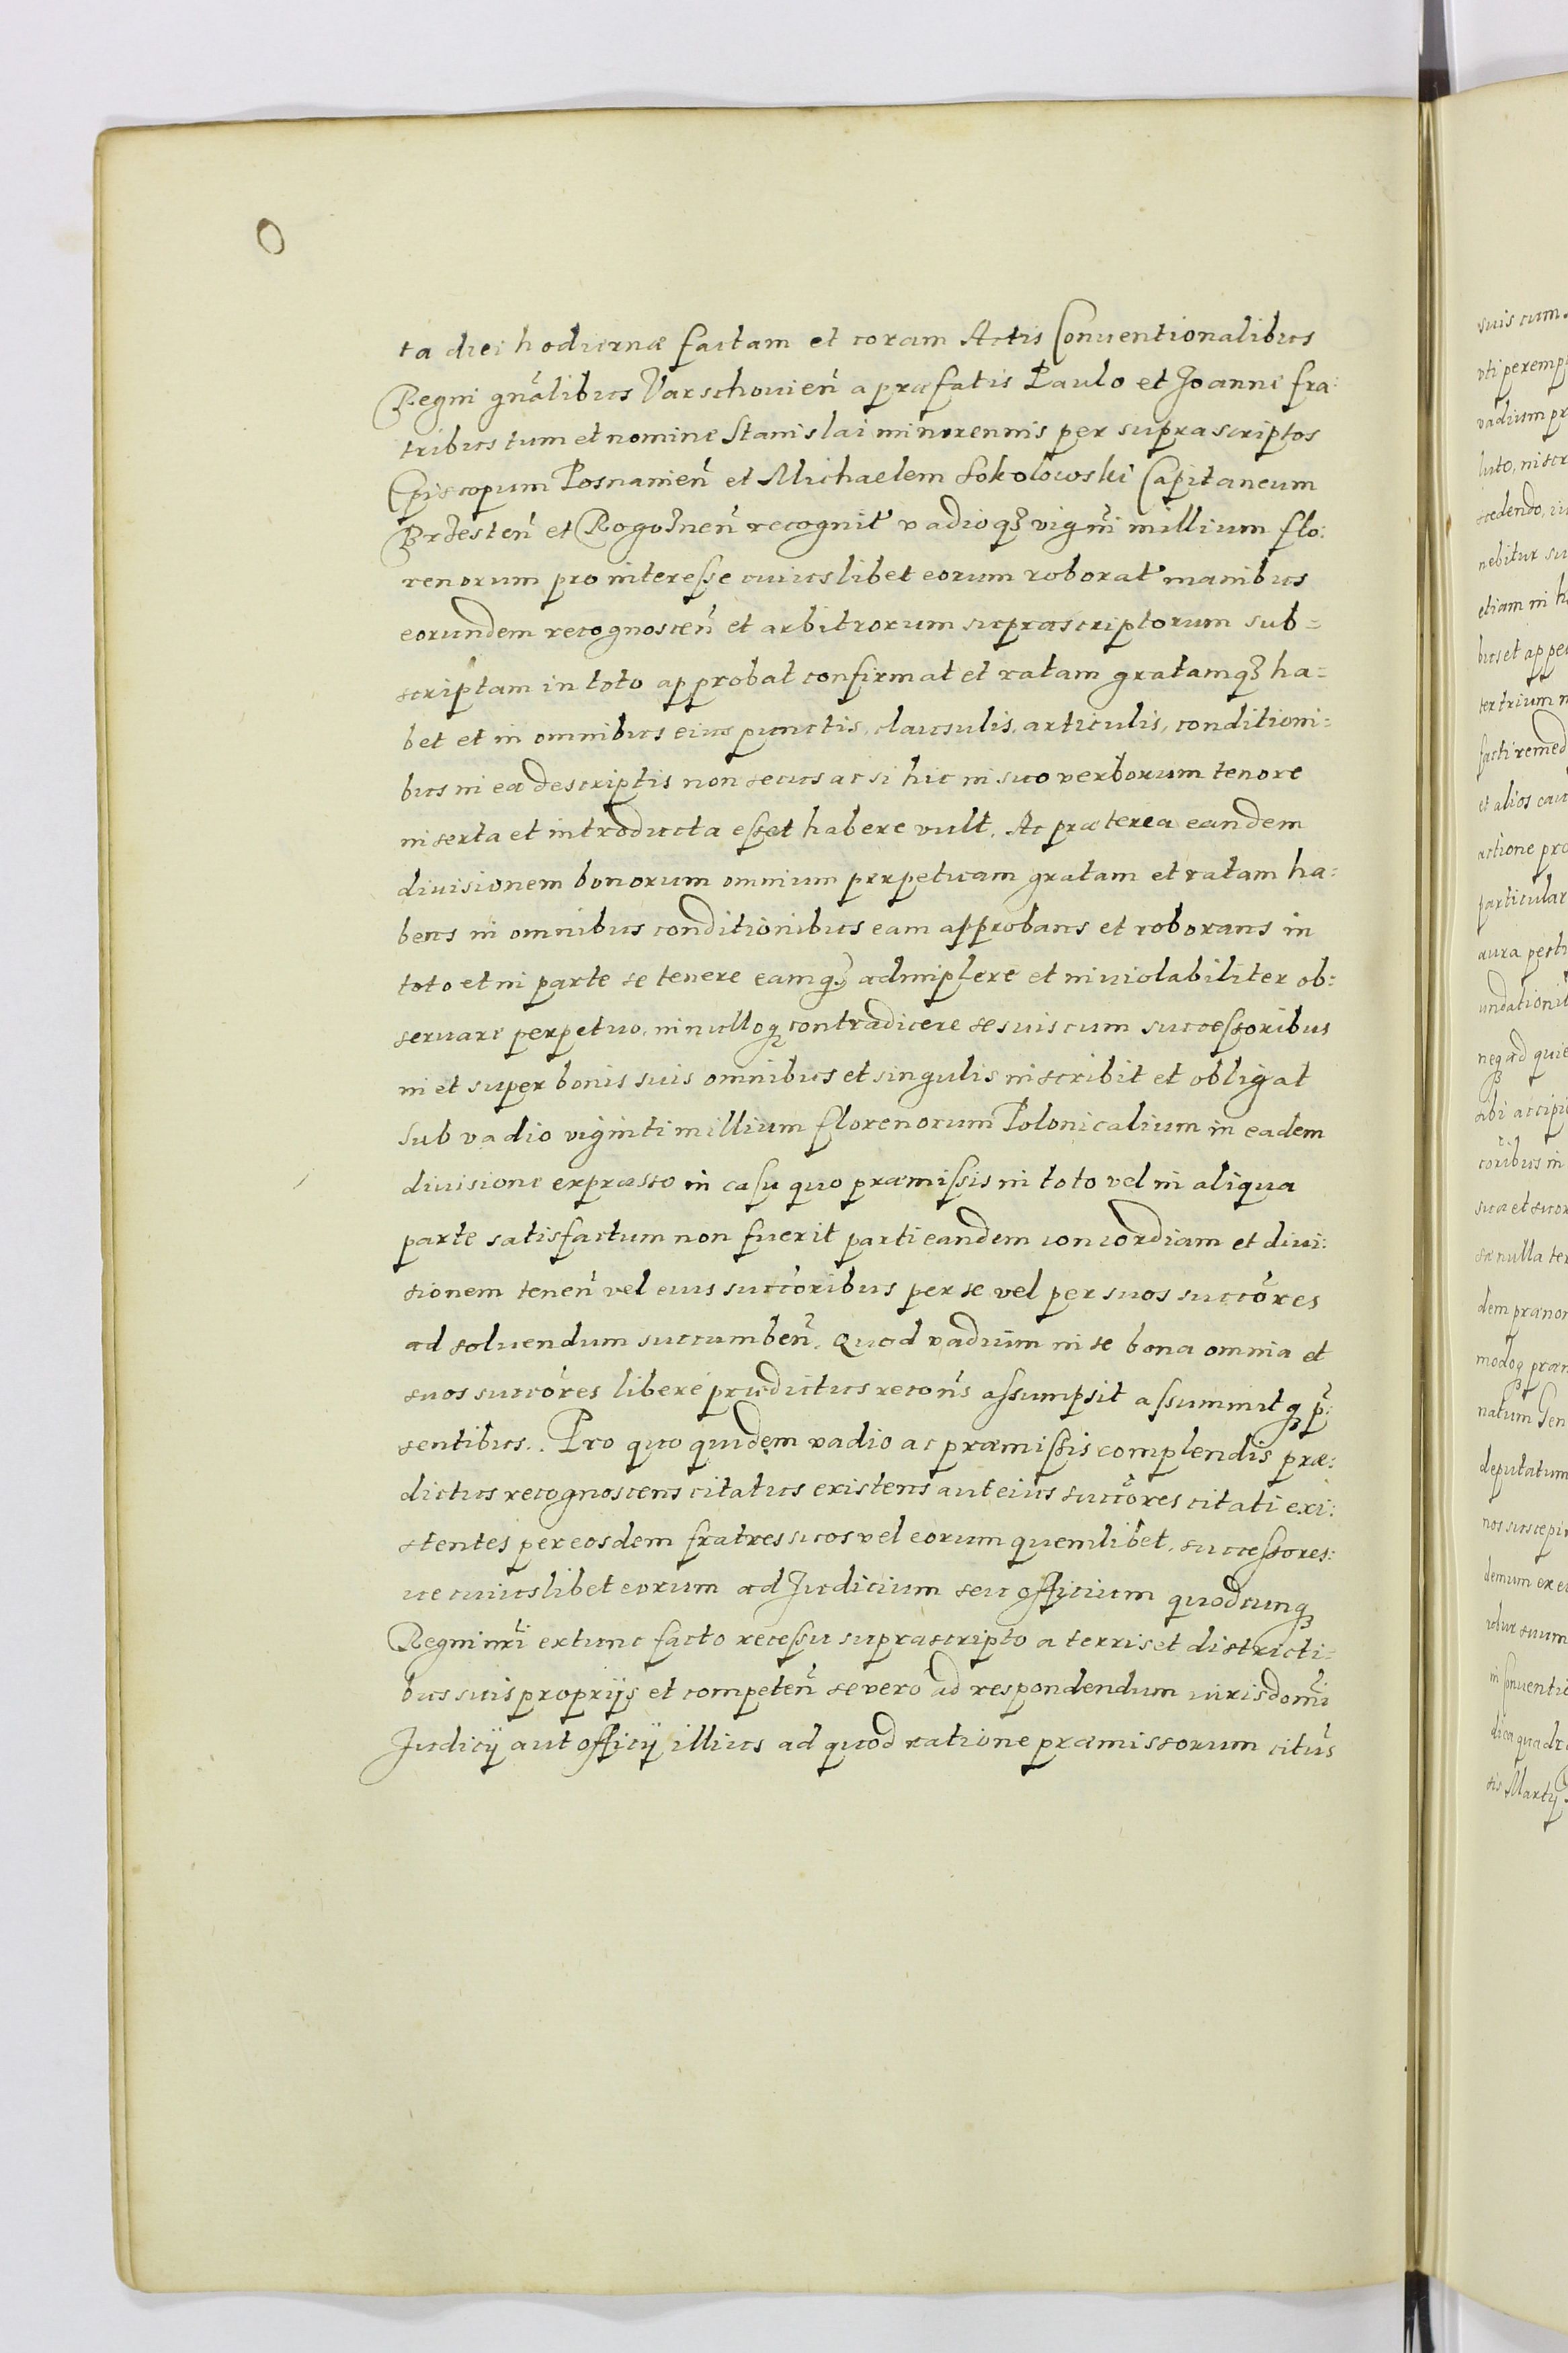 ta diei hodiernæ factam et coram Actis Conuentionalibus
Regni gnãlibus Varschouień a præfatis Paulo et Joanne fra:
tribus tum et nomine Stanislai minorennis per suprascriptos
Episcopum Posnanień et Michaelem Sokolowski Capitaneum
Brzesteń et Rogozneń recognit' vadioqȝ vigiñi millium flo:
renorum pro interesse cuiuslibet eorum roborat' manibus
eorundem recognosceń et arbitrorum suprascriptorum sub=
scriptam in toto approbat confirmat et ratam gratamqȝ ha=
bet et in omnibus eius punctis, clausulis, articulis, conditioni=
bus in ea descriptis non secus ac si hic in suo verborum tenore
inserta et introducta esset habere vult. Ac præterea eandem
diuisionem bonorum omnium perpetuam gratam et ratam ha:
bens in omnibus conditionibus eam approbans et roborans in
toto et in parte se tenere eamqȝ adimplere et inuiolabiliter ob:
seruare perpetuo, in nulloqȝ contradicere se suis cum successoribus
in et super bonis suis omnibus et singulis inscribit et obligat
sub vadio viginti millium florenorum Polonicalium in eadem
diuisione expræsso in casu quo præmissis in toto vel in aliqua
parte satisfactum non fuerit parti eandem concordiam et diui:
sionem teneń vel eius succoribus per se vel per suos succores
ad soluendum succumbeń. Quod vadium in se bona omnia et
suos succores libere prædictus recoñs assumpsit assummitqȝ p̃:
sentibus.. Pro quo quidem vadio ac præmissis complendis præ:
dictus recognoscens citatus existens aut eius succores citati exi:
stentes per eosdem fratres suos vel eorum quemlibet, successores:
ue cuiuslibet eorum ad Judicium seu officium quodcunqȝ
Regni nr̃i extunc facto recessu suprascripto a terris et districti=
bus suis proprijs et competeń se vero ad respondendum iurisdom̃i
Judicij aut officij illius ad quod ratione præmissorum cit̃us